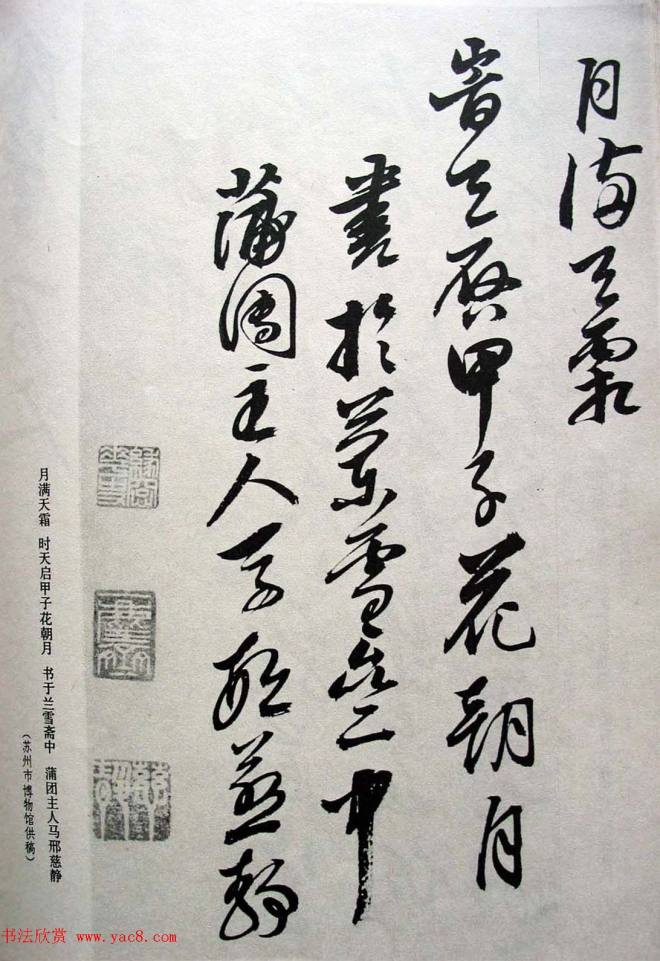 月满天霜
时天启甲子花朝月
书於兰雪斋中
蒲团主人马邢慈静
月满天霜 时天启甲子花朝月 书于兰雪斋中 蒲团主人马邢慈静
（苏州市博物馆供稿）
书法欣赏 www.yac8.com